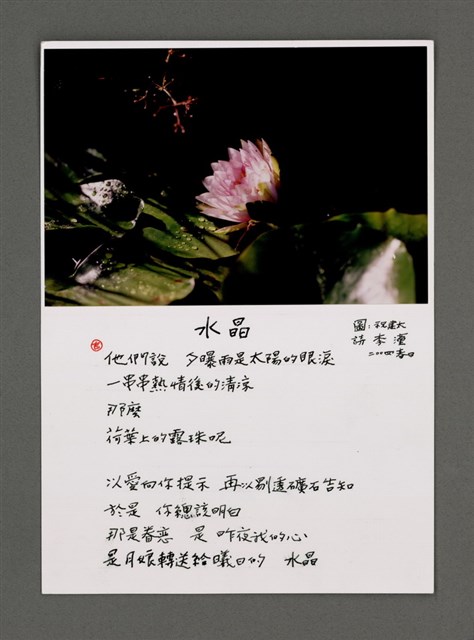 水晶
圖：祝建太
詩 李潼
二〇〇四春日
他們說 夕曝雨是太陽的眼淚
一串串熱情後的清涼
那麼
荷葉上的露珠呢
以愛向你提示 再以剔透礦石告知
於是 你總該明白
那是眷戀 是 昨夜我的心
是月娘轉送給曦日的 水晶